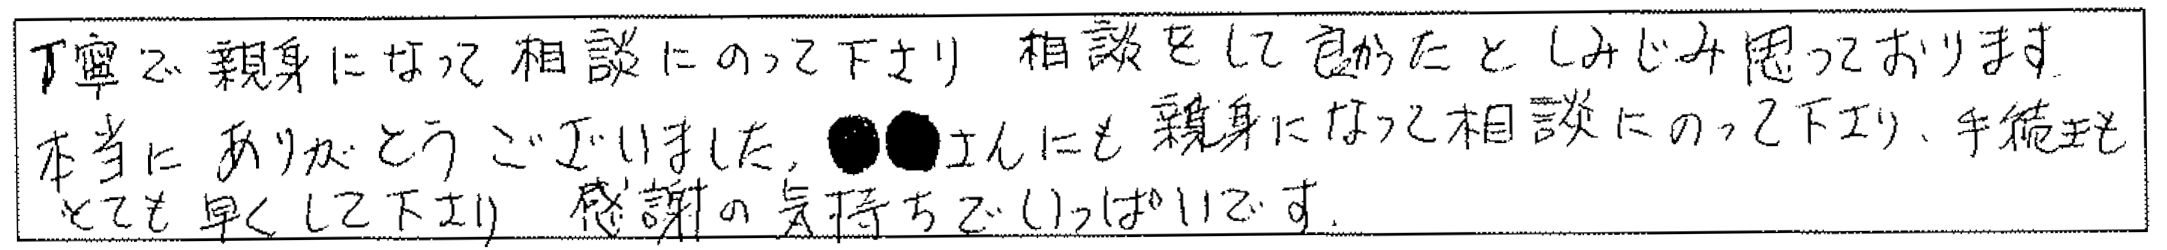 丁寧で親身になって相談にのって下さり 相談をして良かったとしみじみ思っております.
本当にありがとうございました。●●さんにも親身になって相談にのって下さり、手続きも
とても早くして下さり 感謝の気持ちでいっぱいです.